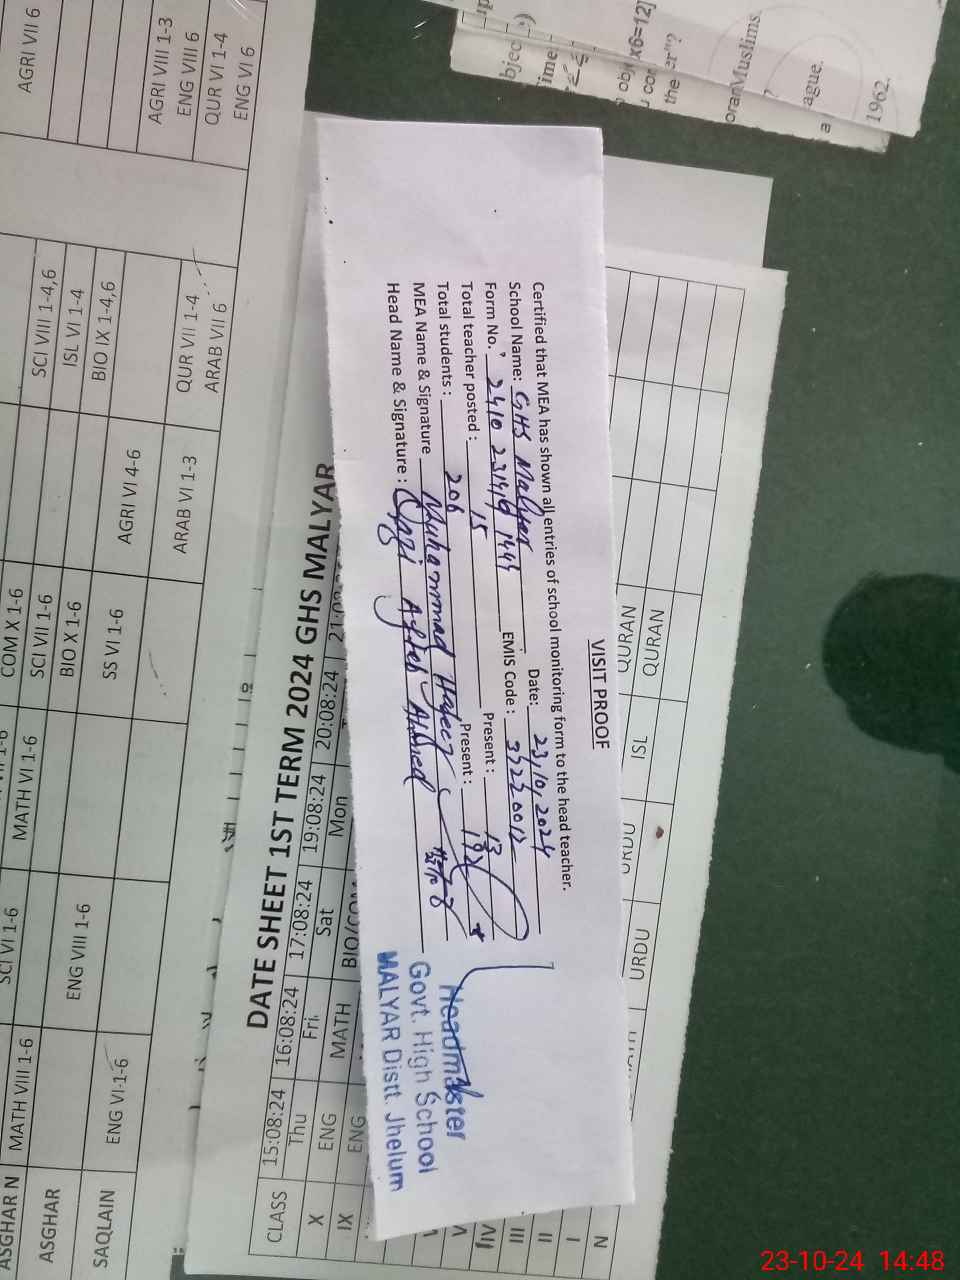 VISIT PROOF
Certified that MEA has shown all entries of school monitoring form to the head teacher.
School Name: GHS Malyar Date: 23/10/2024
Form No. 2410 EMIS Code :
Total teacher posted : 15 Present : 13
Total students : 206 Present : 192
MEA Name & Signature Muhammad Hafeez
Head Name & Signature : Qazi Aftab Ahmed
Headmaster
Govt. High School
MALYAR Distt. Jhelum
DATE SHEET 1ST TERM 2024 GHS MALYAR
CLASS 15:08:24 16:08:24 17:08:24 19:08:24 20:08:24
Thu Fri. Sat Mon
X ENG MATH BIO/
IX ENG
III
II
I
N
URDU
URDU
ISL
QURAN QURAN
AGRI VII 6
AGRI VIII 1-3
ENG VIII 6
QUR VI 1-4
ENG VI 6
SCI VIII 1-4,6
ISL VI 1-4
BIO IX 1-4,6
QUR VII 1-4
ARAB VII 6
AGRI VI 4-6
ARAB VI 1-3
COM X 1-6
SCI VII 1-6
BIO X 1-6
SS VI 1-6
MATH VI 1-6
SCI VI 1-6
ENG VIII 1-6
ASGHAR N MATH VIII 1-6
ASGHAR
SAQLAIN ENG VI-1-6
x6=12]
the er"?
oranMuslims
?
ague.
a
1962.
23-10-24 14:48